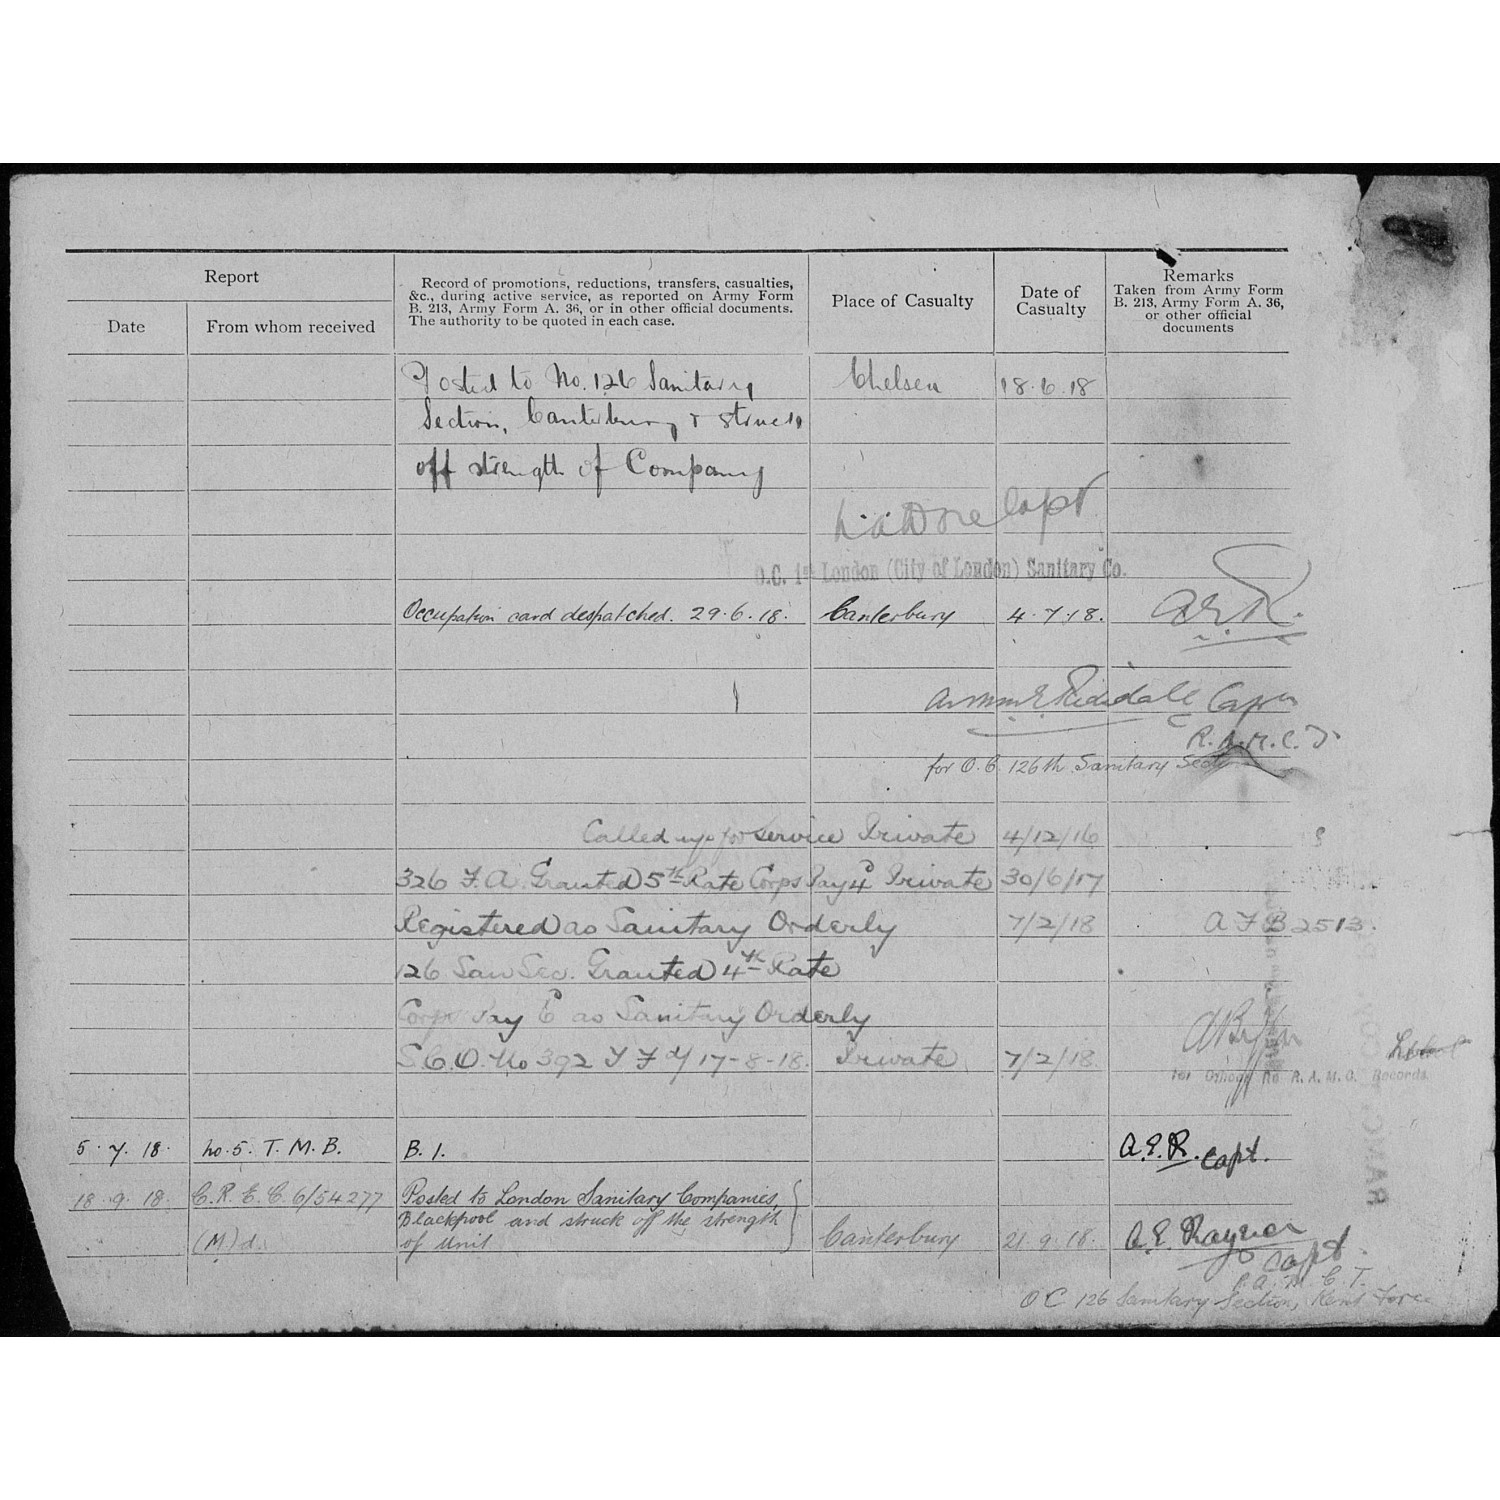 Report
Date
From whom received
Record of promotions, reductions, transfers, casualties,
&c., during active service, as reported on Army Form
B. 213, Army Form A. 36, or in other official documents.
The authority to be quoted in each case.
Place of Casualty
Date of
Casualty
Remarks
Taken from Army Form
B. 213, Army Form A. 36,
or other official
documents
Posted to No. 126 Sanitary Chelsea 18.6.18
Section, Canterbury & struck
off strength of Company
Capt
O.C. 1st London (City of London) Sanitary Co.
Occupation card despatched. 29.6.18. Canterbury 4.7.18. A.E.R.
Capt
R.A.M.C.T.
for O.C. 126th Sanitary Sect
Called up for service Private 4/12/16
326 F.A. Granted 5th Rate Corps Pay 4d Private 30/6/17
Registered as Sanitary Orderly 7/2/18 A F B 2513.
126 San Sec. Granted 4th Rate
Corps Pay 6d as Sanitary Orderly
S.C.O. No 392 T F d/ 17-8-18. Private 7/2/18.
for Officer i/c R.A.M.C. Records.
5.7.18. No.5. T.M.B. B.1. A.E.R. Capt.
18.9.18. C.R.E.C. 6/54277 Posted to London Sanitary Companies,
Blackpool and struck off the strength
(M)d. of Unit Canterbury 21.9.18. A.E. Rayner
Capt.
R.A.M.C.T.
OC 126 Sanitary Section, Kent Force